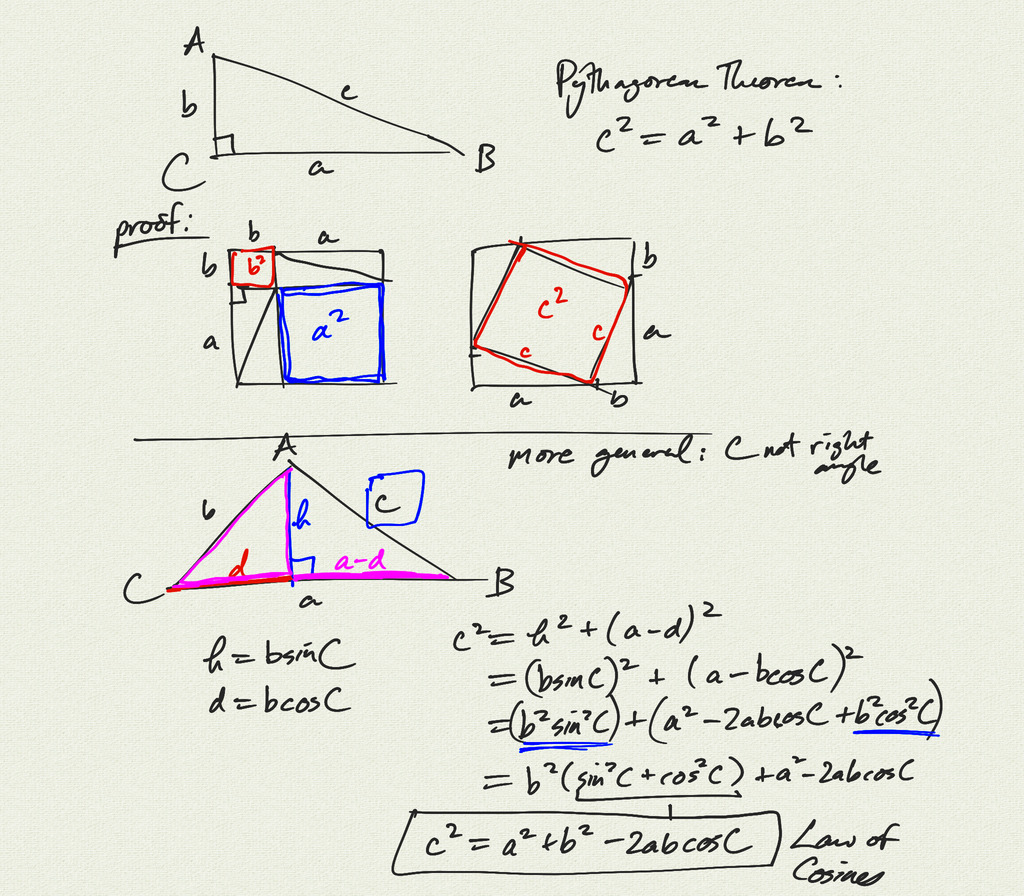 A
b
c
C
a
B
Pythagorean Theorem:
c² = a² + b²
proof:
b a
b b²
a a²
c²
c
c
b
a
a b
more general: C not right angle
A
b
h
c
d
a-d
C
a
B
h = bsinC
d = bcosC
c² = h² + (a-d)²
= (bsinC)² + (a - bcosC)²
= (b²sin²C) + (a² - 2abcosC + b²cos²C)
= b²(sin²C + cos²C) + a² - 2abcosC
1
c² = a² + b² - 2abcosC
Law of
Cosines